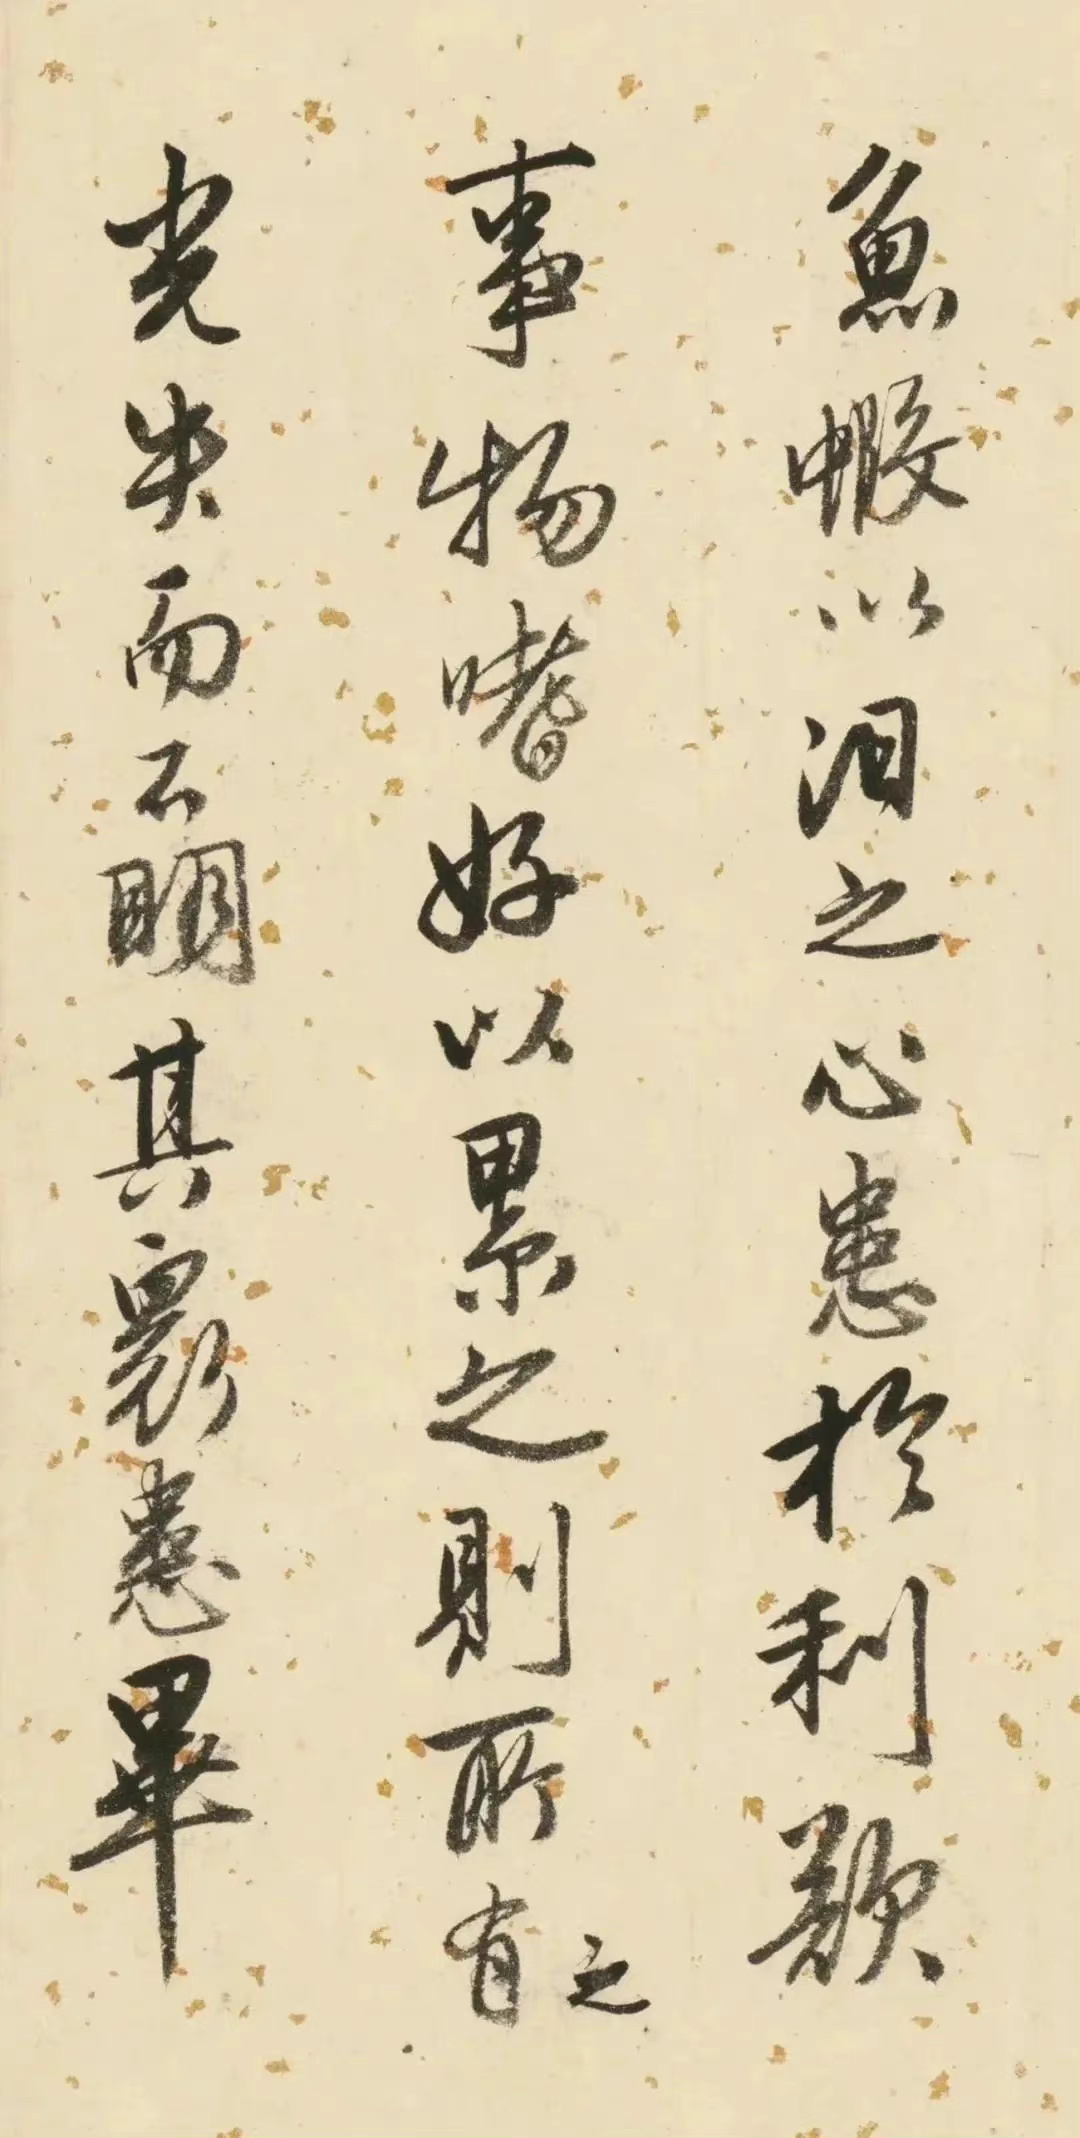 魚蝦以汩之心患於利
事物嗜好以累之則所有之
光失而不明其衆患畢